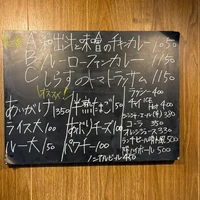 A 和出汁と味噌のチキンカレー 1050
B ルーローファンカレー 1150
C しらすのトマトラッサム 1150
オススメ!
あいがけ 1350
ライス大 100
ルー大 150
半熟たまご 50
あぶりチーズ 100
パクチー 100
ラッシー 400
チャイ ICE
Hot 400
ジンジャーエール(辛) 380
コーラ 350
オレンジジュース 330
ランチビール 500
ハイボール 500
ノンアルビール 450